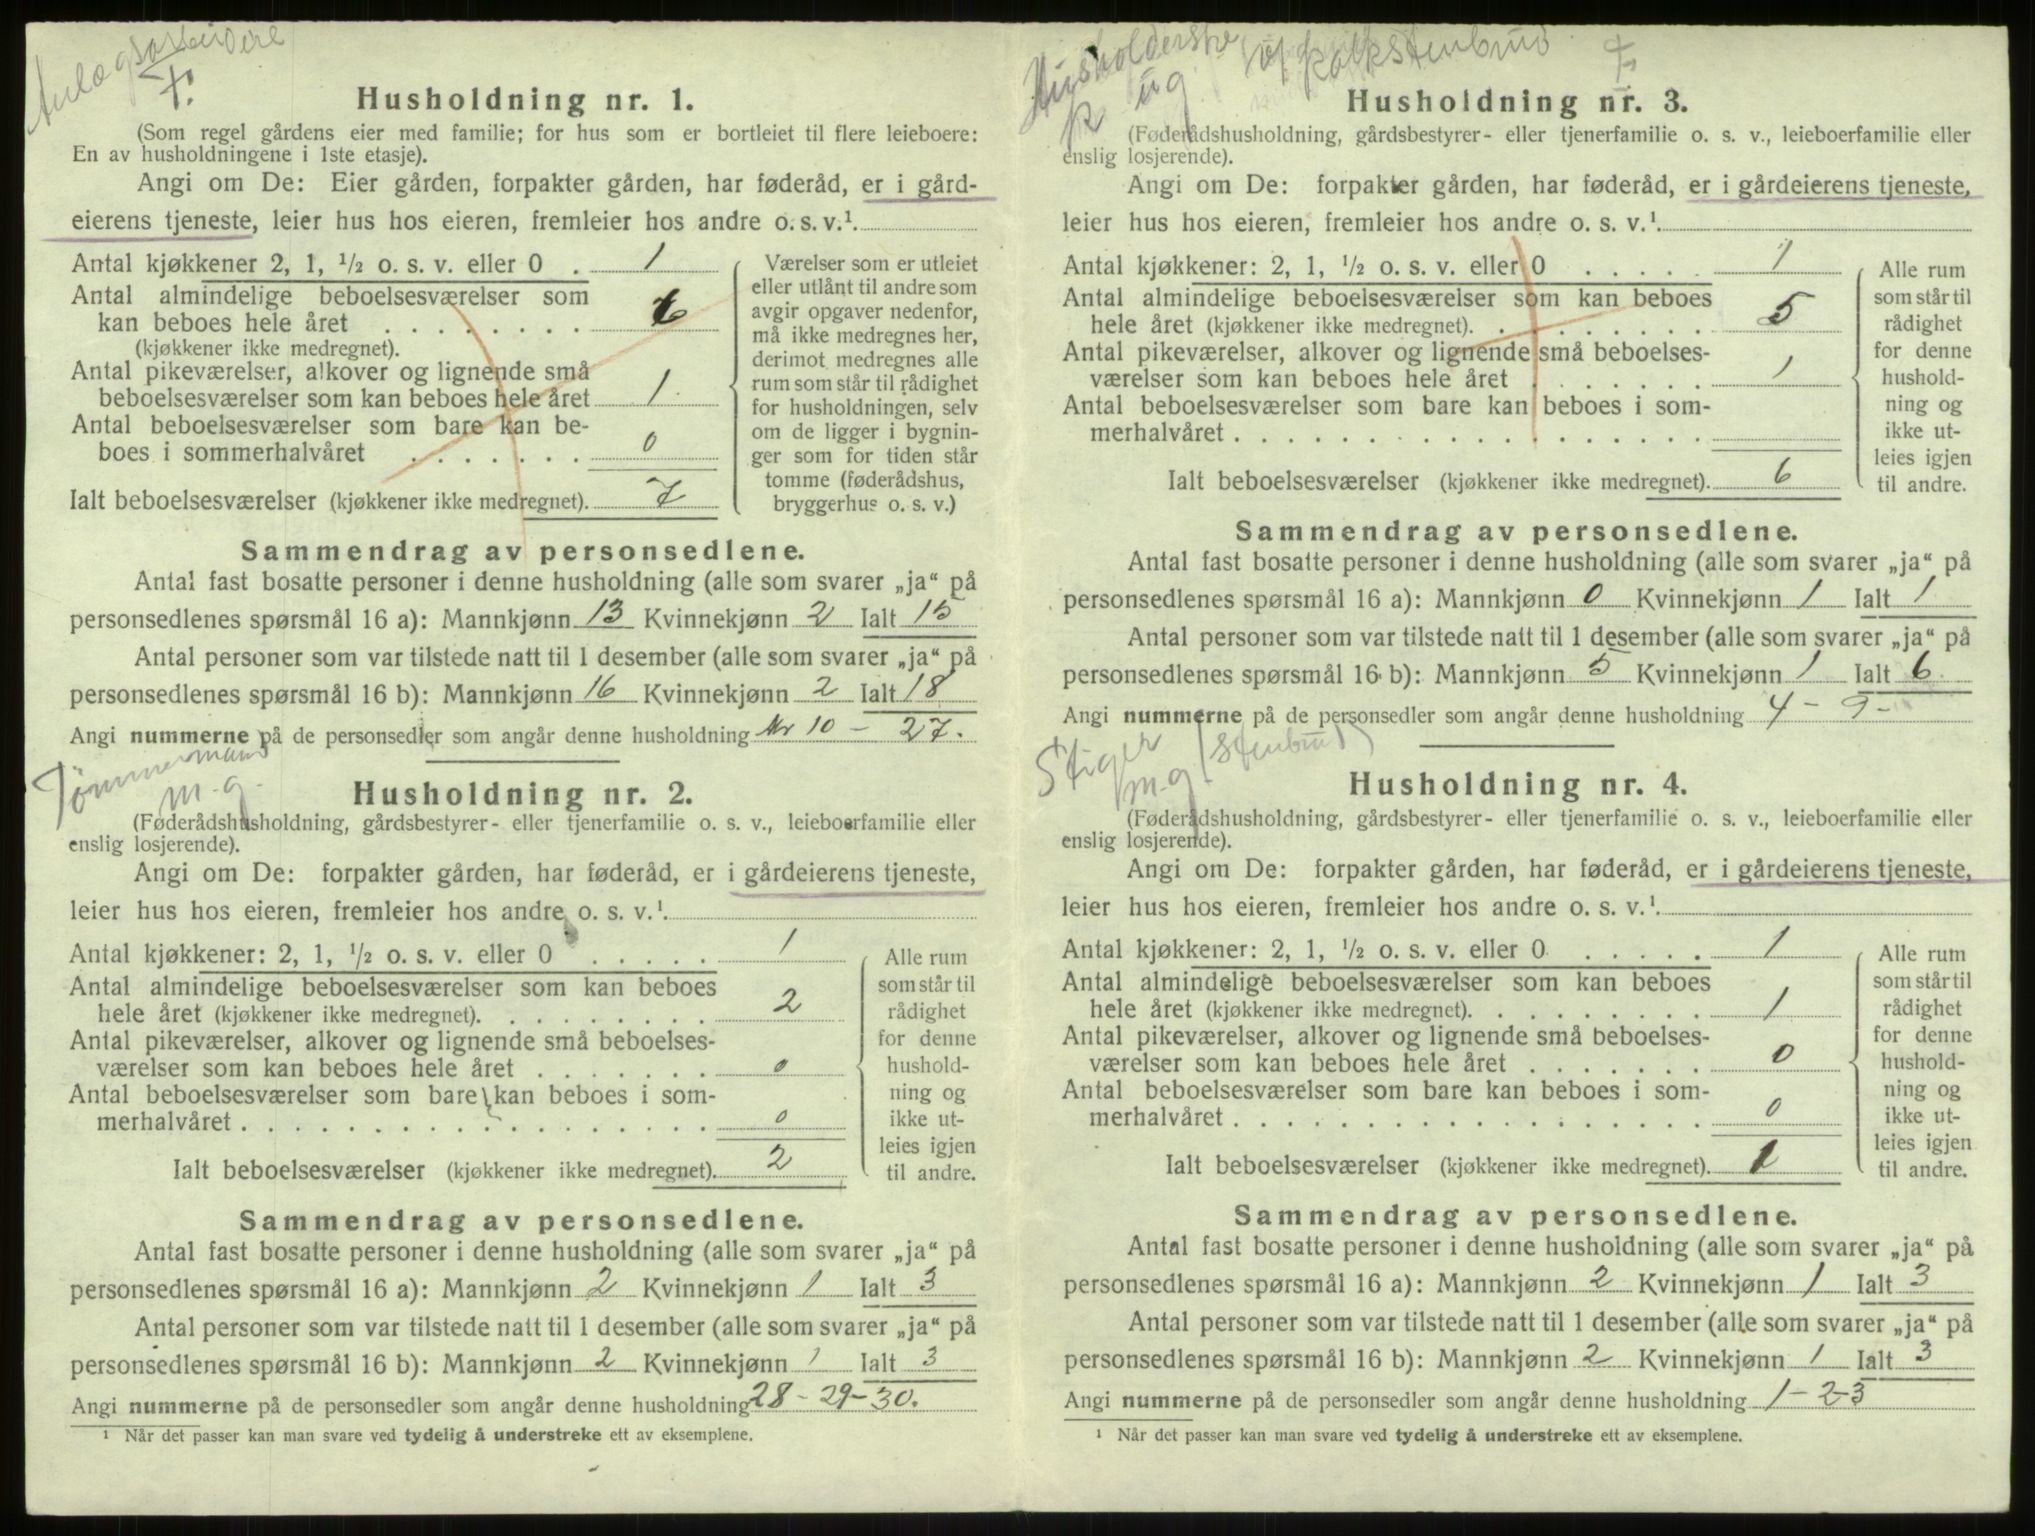 Anlægsarbeidere
F.
Husholdning nr. 1.
(Som regel gårdens eier med familie; for hus som er bortleiet til flere leieboere:
En av husholdningene i 1ste etasje).
Angi om De: Eier gården, forpakter gården, har føderåd, er i gård-
eierens tjeneste, leier hus hos eieren, fremleier hos andre o. s. v.¹.
Antal kjøkkener 2, 1, ½ o. s. v. eller 0 . 1
Antal almindelige beboelsesværelser som
kan beboes hele året . . . . . . . . 6
(kjøkkener ikke medregnet).
Antal pikeværelser, alkover og lignende små
beboelsesværelser som kan beboes hele året 1
Antal beboelsesværelser som bare kan be-
boes i sommerhalvåret . . . . . . . 0
Ialt beboelsesværelser (kjøkkener ikke medregnet). 7
Værelser som er utleiet
eller utlånt til andre som
avgir opgaver nedenfor,
må ikke medregnes her,
derimot medregnes alle
rum som står til rådighet
for husholdningen, selv
om de ligger i bygnin-
ger som for tiden står
tomme (føderådshus,
bryggerhus o. s. v.)
Sammendrag av personsedlene.
Antal fast bosatte personer i denne husholdning (alle som svarer „ja“ på
personsedlenes spørsmål 16 a): Mannkjønn 13 Kvinnekjønn 2 Ialt 15
Antal personer som var tilstede natt til 1 desember (alle som svarer „ja“ på
personsedlenes spørsmål 16 b): Mannkjønn 16 Kvinnekjønn 2 Ialt 18
Angi nummerne på de personsedler som angår denne husholdning Nr 10 - 27.
Tømmermand
m. g.
Husholdning nr. 2.
(Føderådshusholdning, gårdsbestyrer- eller tjenerfamilie o. s. v., leieboerfamilie eller
enslig losjerende).
Angi om De: forpakter gården, har føderåd, er i gårdeierens tjeneste,
leier hus hos eieren, fremleier hos andre o. s. v.¹.
Antal kjøkkener: 2, 1, ½ o. s. v. eller 0 . . . . . 1
Antal almindelige beboelsesværelser som kan beboes
hele året (kjøkkener ikke medregnet). . . . . . . . . 2
Antal pikeværelser, alkover og lignende små beboelses-
værelser som kan beboes hele året . . . . . . . 0
Antal beboelsesværelser som bare kan beboes i som-
merhalvåret . . . . . . . . . . . . . . . . . . 0
Ialt beboelsesværelser (kjøkkener ikke medregnet). 2
Alle rum
som står til
rådighet
for denne
hushold-
ning og
ikke ut-
leies igjen
til andre.
Sammendrag av personsedlene.
Antal fast bosatte personer i denne husholdning (alle som svarer „ja“ på
personsedlenes spørsmål 16 a): Mannkjønn 2 Kvinnekjønn 1 Ialt 3
Antal personer som var tilstede natt til 1 desember (alle som svarer „ja“ på
personsedlenes spørsmål 16 b): Mannkjønn 2 Kvinnekjønn 1 Ialt 3
Angi nummerne på de personsedler som angår denne husholdning 28 - 29 - 30.
¹ Når det passer kan man svare ved tydelig å understreke ett av eksemplene.
Husholderske v/ kalkstenbrud F
k ug
Husholdning nr. 3.
(Føderådshusholdning, gårdsbestyrer- eller tjenerfamilie o. s. v., leieboerfamilie eller
enslig losjerende).
Angi om De: forpakter gården, har føderåd, er i gårdeierens tjeneste,
leier hus hos eieren, fremleier hos andre o. s. v.¹.
Antal kjøkkener: 2, 1, ½ o. s. v. eller 0 . . . . . 1
Antal almindelige beboelsesværelser som kan beboes
hele året (kjøkkener ikke medregnet). . . . . . . . . 5
Antal pikeværelser, alkover og lignende små beboelses-
værelser som kan beboes hele året . . . . . . . 1
Antal beboelsesværelser som bare kan beboes i som-
merhalvåret . . . . . . . . . . . . . . . . . .
Ialt beboelsesværelser (kjøkkener ikke medregnet). 6
Alle rum
som står til
rådighet
for denne
hushold-
ning og
ikke ut-
leies igjen
til andre.
Sammendrag av personsedlene.
Antal fast bosatte personer i denne husholdning (alle som svarer „ja“ på
personsedlenes spørsmål 16 a): Mannkjønn 0 Kvinnekjønn 1 Ialt 1
Antal personer som var tilstede natt til 1 desember (alle som svarer „ja“ på
personsedlenes spørsmål 16 b): Mannkjønn 5 Kvinnekjønn 1 Ialt 6
Angi nummerne på de personsedler som angår denne husholdning 4 - 9 -
Stiger (Stenbrud)
m. g.
Husholdning nr. 4.
(Føderådshusholdning, gårdsbestyrer- eller tjenerfamilie o. s. v., leieboerfamilie eller
enslig losjerende).
Angi om De: forpakter gården, har føderåd, er i gårdeierens tjeneste,
leier hus hos eieren, fremleier hos andre o. s. v.¹.
Antal kjøkkener: 2, 1, ½ o. s. v. eller 0 . . . . . 1
Antal almindelige beboelsesværelser som kan beboes
hele året (kjøkkener ikke medregnet). . . . . . . . . 1
Antal pikeværelser, alkover og lignende små beboelses-
værelser som kan beboes hele året . . . . . . . 0
Antal beboelsesværelser som bare kan beboes i som-
merhalvåret . . . . . . . . . . . . . . . . . . 0
Ialt beboelsesværelser (kjøkkener ikke medregnet). 1
Alle rum
som står til
rådighet
for denne
hushold-
ning og
ikke ut-
leies igjen
til andre.
Sammendrag av personsedlene.
Antal fast bosatte personer i denne husholdning (alle som svarer „ja“ på
personsedlenes spørsmål 16 a): Mannkjønn 2 Kvinnekjønn 1 Ialt 3
Antal personer som var tilstede natt til 1 desember (alle som svarer „ja“ på
personsedlenes spørsmål 16 b): Mannkjønn 2 Kvinnekjønn 1 Ialt 3
Angi nummerne på de personsedler som angår denne husholdning 1 - 2 3
¹ Når det passer kan man svare ved tydelig å understreke ett av eksemplene.